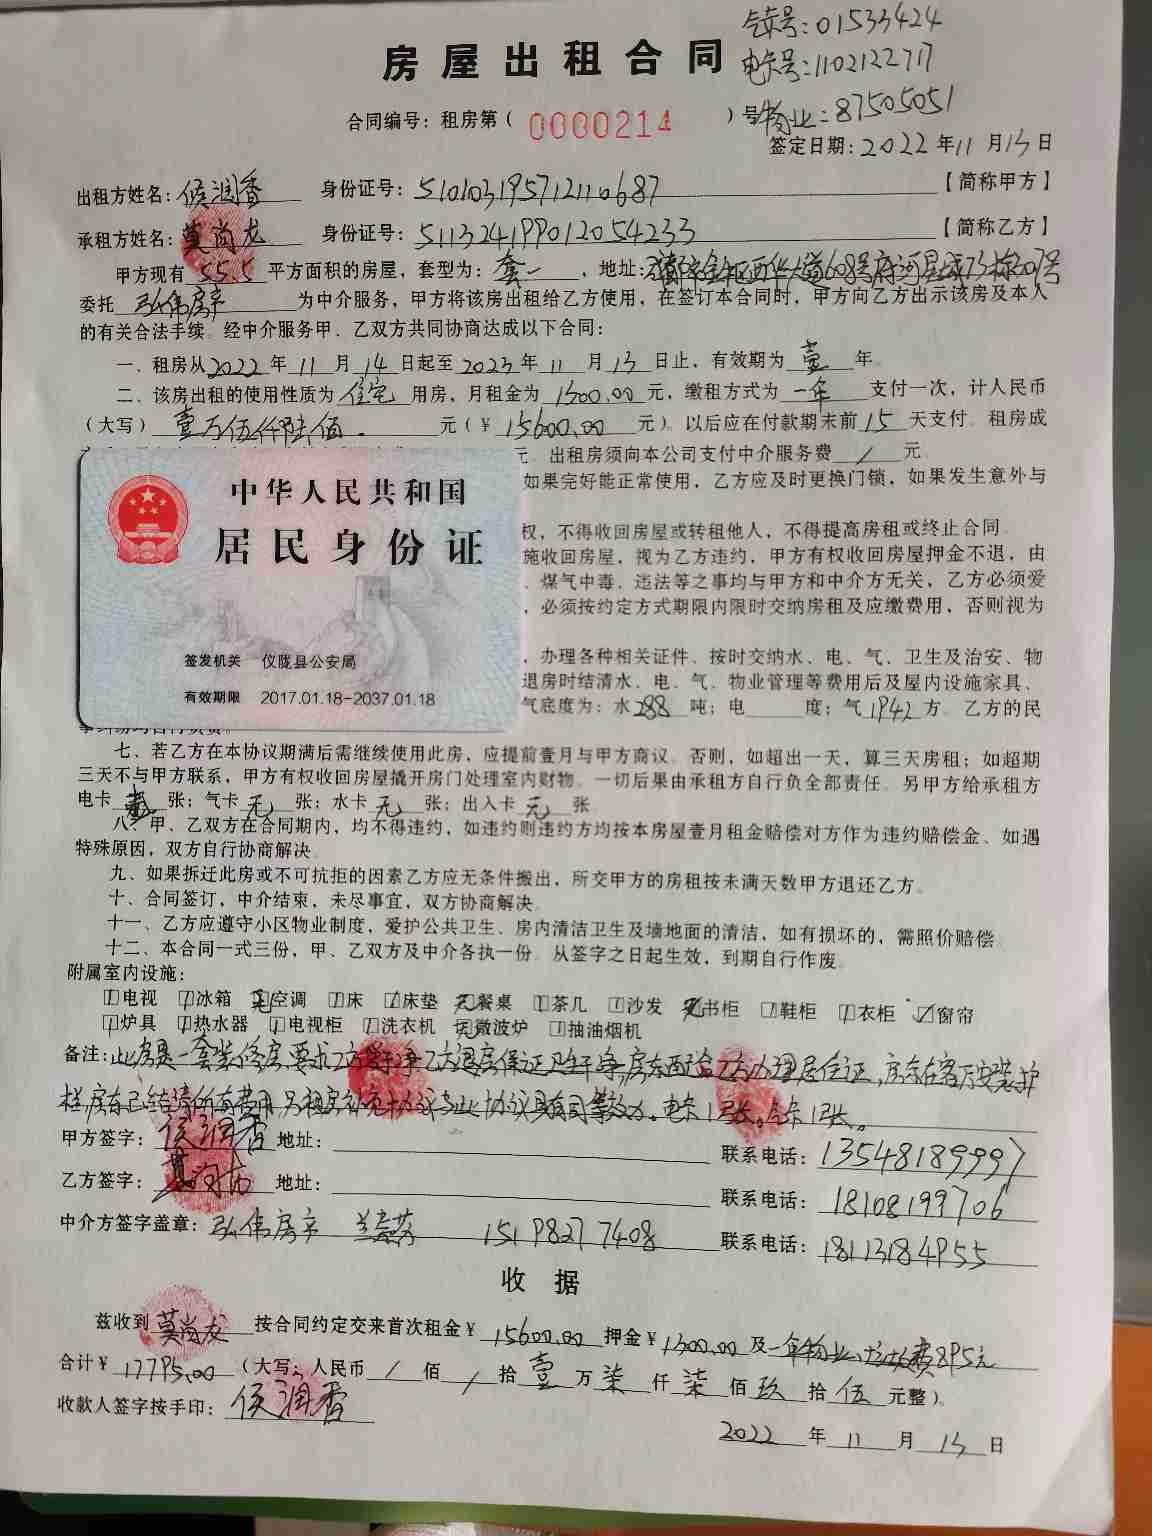 气卡号:01533424
房屋出租合同
电卡号:1102122717
合同编号：租房第（0000214）号
物业:87505051
签定日期:2022年11月13日
出租方姓名:侯润香 身份证号:510103195712110687【简称甲方】
承租方姓名:莫尚龙 身份证号:511324199012054233【简称乙方】
甲方现有55.5平方面积的房屋，套型为：套一，地址:西华大道608号府河星城73栋307号
委托弘伟房产为中介服务，甲方将该房出租给乙方使用，在签订本合同时，甲方向乙方出示该房及本人
的有关合法手续。经中介服务甲、乙双方共同协商达成以下合同：
一、租房从2022年11月14日起至2023年11月13日止，有效期为壹年。
二、该房出租的使用性质为住宅用房，月租金为1300.00元，缴租方式为一年支付一次，计人民币
（大写）壹万伍仟陆佰元（￥15600.00元）。以后应在付款期末前15天支付。租房成
元。出租房须向本公司支付中介服务费/元。
如果完好能正常使用，乙方应及时更换门锁，如果发生意外与
权，不得收回房屋或转租他人，不得提高房租或终止合同。
施收回房屋，视为乙方违约，甲方有权收回房屋押金不退，由
、煤气中毒、违法等之事均与甲方和中介方无关，乙方必须爱
，必须按约定方式期限内限时交纳房租及应缴费用，否则视为
，办理各种相关证件、按时交纳水、电、气、卫生及治安、物
退房时结清水、电、气、物业管理等费用后及屋内设施家具、
气底度为：水288吨；电 度；气1942方。乙方的民
中华人民共和国
居民身份证
签发机关 仪陇县公安局
有效期限 2017.01.18-2037.01.18
七、若乙方在本协议期满后需继续使用此房，应提前壹月与甲方商议。否则，如超出一天，算三天房租；如超期
三天不与甲方联系，甲方有权收回房屋撬开房门处理室内财物。一切后果由承租方自行负全部责任。另甲方给承租方
电卡 张；气卡无张；水卡无张；出入卡无张
八、甲、乙双方在合同期内，均不得违约，如违约则违约方均按本房屋壹月租金赔偿对方作为违约赔偿金、如遇
特殊原因，双方自行协商解决。
九、如果拆迁此房或不可抗拒的因素乙方应无条件搬出，所交甲方的房租按未满天数甲方退还乙方。
十、合同签订，中介结束，未尽事宜，双方协商解决。
十一、乙方应遵守小区物业制度，爱护公共卫生、房内清洁卫生及墙地面的清洁，如有损坏的，需照价赔偿
十二、本合同一式三份，甲、乙双方及中介各执一份。从签字之日起生效，到期自行作废。
附属室内设施：
电视 冰箱 无空调 床 床垫 无餐桌 茶几 沙发 无书柜 鞋柜 衣柜 窗帘
炉具 热水器 电视柜 洗衣机 无微波炉 抽油烟机
备注:此房是一套装修房,要求乙方爱干净,乙方退房保证卫生干净,房东配合乙方办理居住证,房东在客厅安装护
栏,房东已结清所有费用,另租房补充协议与此协议具有同等效力。电卡1张。气卡1张。
甲方签字：侯润香 地址： 联系电话：13548189997
乙方签字：莫尚龙 地址： 联系电话：18108199706
中介方签字盖章：弘伟房产 15198277408 联系电话：18113184955
收据
兹收到莫尚龙按合同约定交来首次租金￥15600.00押金￥1300.00及一年物业、垃圾费895元
合计￥17795.00（大写：人民币/佰/拾壹万柒仟柒佰玖拾伍元整）。
收款人签字按手印：侯润香
2022年11月13日